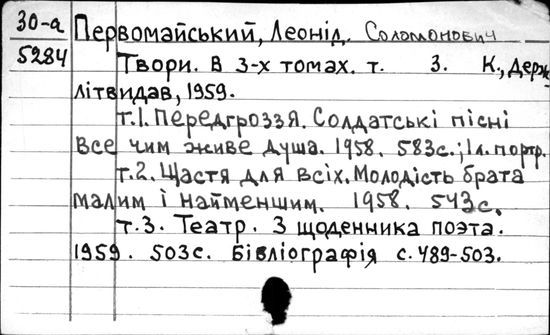 30-а Первомайський, Леонід. Соломонович
5284 Твори. В 3-х томах. т. 3. К., Держ-
літвидав, 1959.
т.1. Передгроззя. Солдатські пісні
Все чим живе душа. 1958. 583с.; 1л. портр.
т.2. Щастя для всіх. Молодість брата
малим і найменшим. 1958. 543с.
т.3. Театр. З щоденника поета.
1959. 503с. Бівліографія с. 489-503.